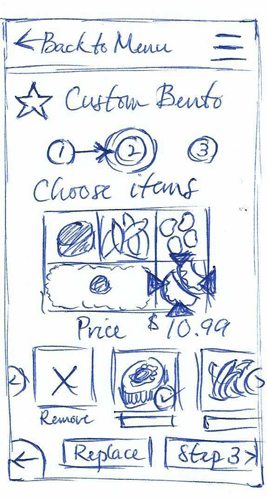 ←Back to Menu
Custom Bento
1 → 2 3
Choose items
Price $10.99
X
Remove
← Replace Step 3>